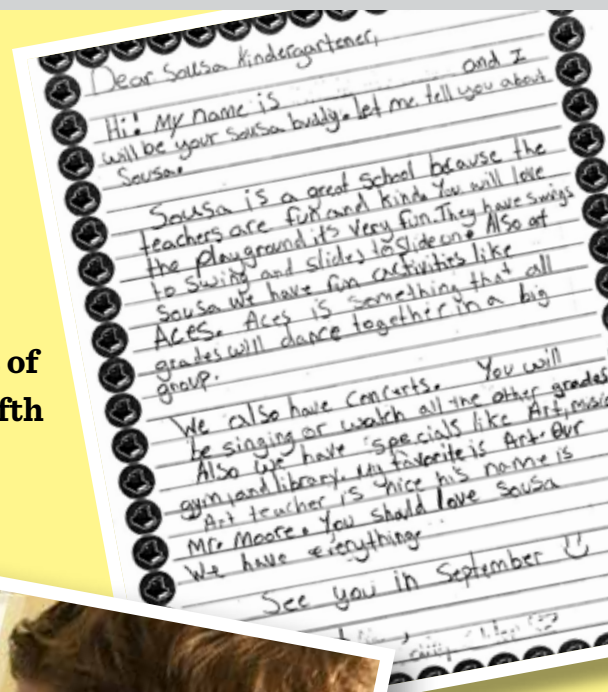 of
fth
Dear Sousa Kindergartener,
Hi! My name is and I
will be your Sousa buddy. let me tell you about
Sousa.
Sousa is a great School because the
teachers are fun and kind. You will love
the playground its very fun. They have swings
to swing and slides to slide on. Also at
Sousa we have fun activities like
ACES. Aces is something that all
grades will dance together in a big
group.
We also have concerts. You will
be singing or watch all the other grades
Also we have specials like Art, music
gym, and library. My favorite is Art. Our
Art teacher is nice his name is
Mr. Moore. You should love Sousa
We have everything.
See you in September